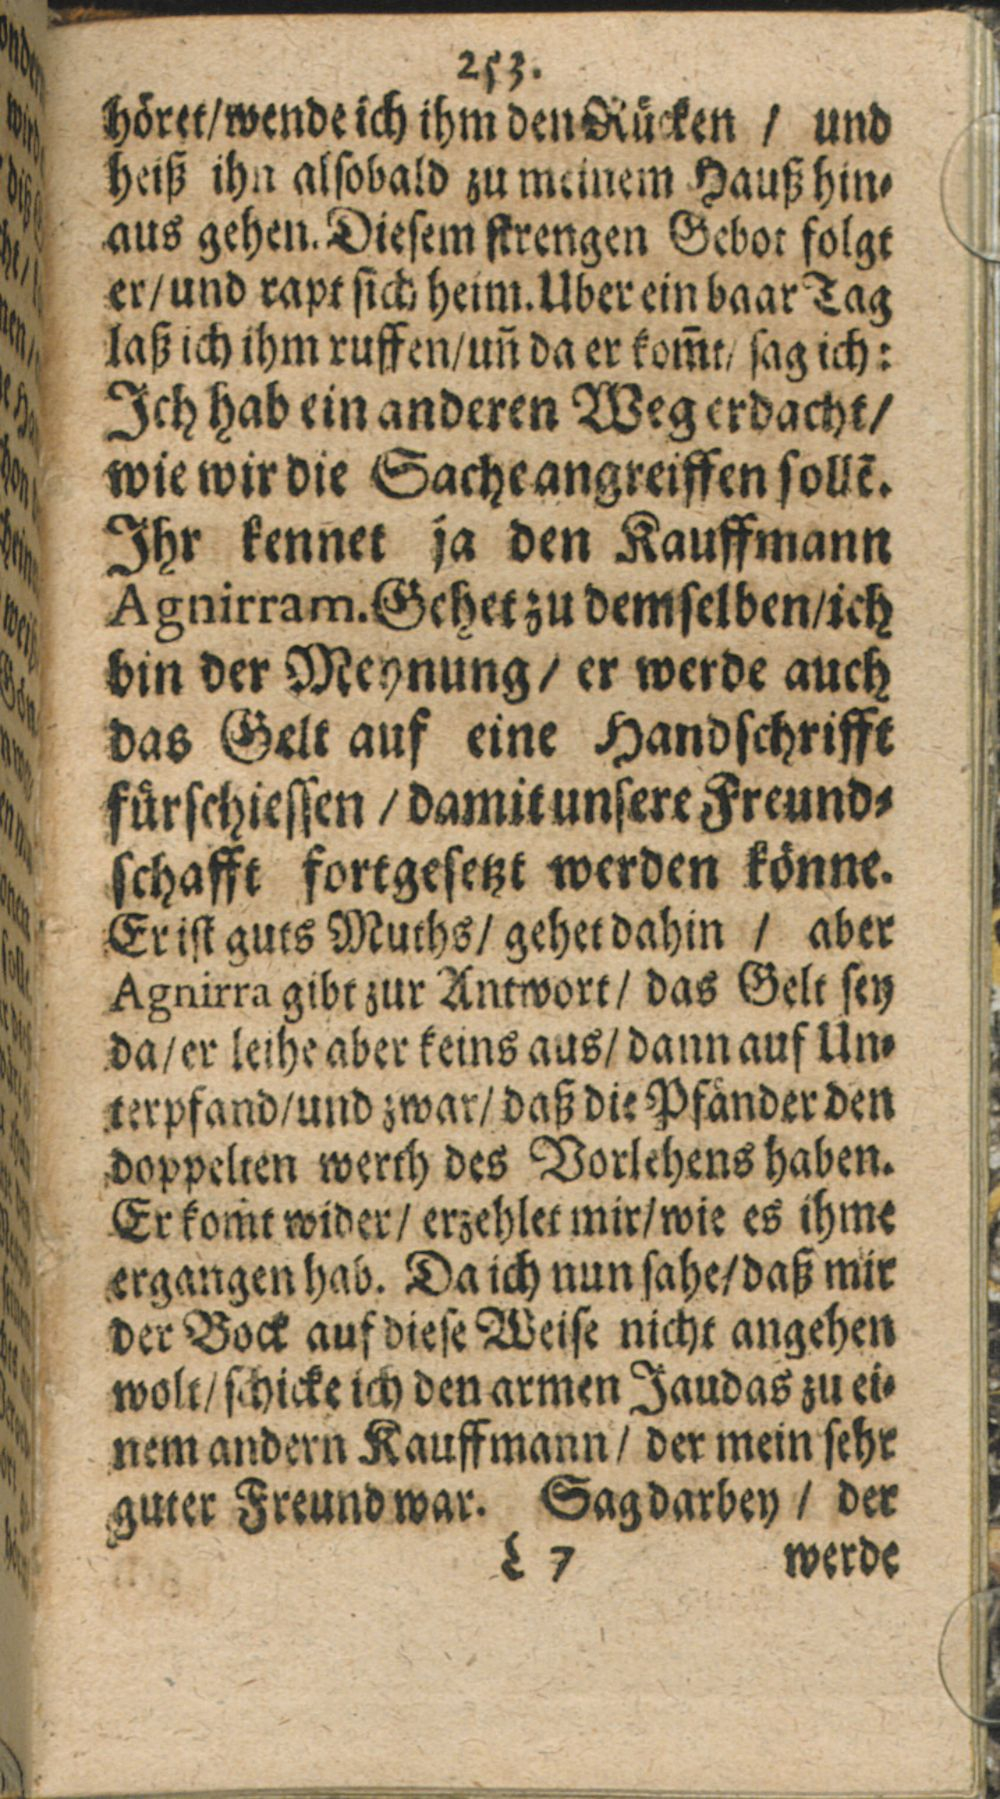 253.
höret/wende ich ihm den Rücken / und
heiß ihn alsobald zu meinem Hauß hin⸗
aus gehen. Diesem strengen Gebot folgt
er/und rapt sich heim. Uber ein baar Tag
laß ich ihm ruffen/uñ da er kom̃t/ sag ich:
Ich hab ein anderen Weg erdacht/
wie wir die Sache angreiffen sollẽ.
Ihr kennet ja den Kauffmann
Agnirram. Gehet zu demselben/ich
bin der Meynung/ er werde auch
das Gelt auf eine Handschrifft
fürschiessen / damit unsere Freund⸗
schafft fortgesetzt werden könne.
Er ist guts Muths/ gehet dahin / aber
Agnirra gibt zur Antwort/ das Gelt sey
da/er leihe aber keins aus/dann auf Un⸗
terpfand/und zwar/ daß die Pfänder den
doppelten werth des Vorlehens haben.
Er kom̃t wider/ erzehlet mir/wie es ihme
ergangen hab. Da ich nun sahe/daß mir
der Bock auf diese Weise nicht angehen
wolt/schicke ich den armen Jaudas zu ei⸗
nem andern Kauffmann/ der mein sehr
guter Freund war. Sag darbey / der
L 7 werde